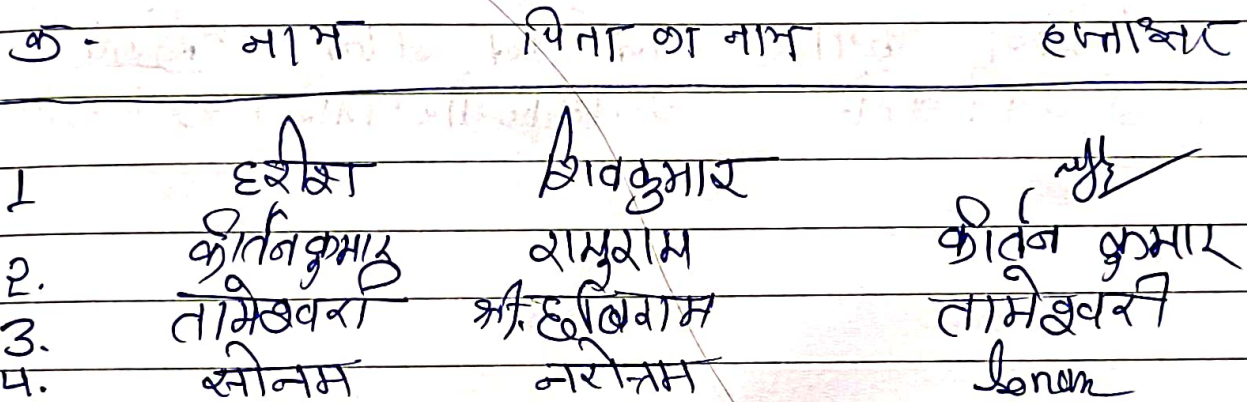 क्र - नाम पिता का नाम हस्ताक्षर
1 हरीश शिवकुमार
2. कीर्तन कुमार रामुराम कीर्तन कुमार
3. तामेश्वरी श्री छबिराम तामेश्वरी
4. सोनम नरोत्तम Sonam